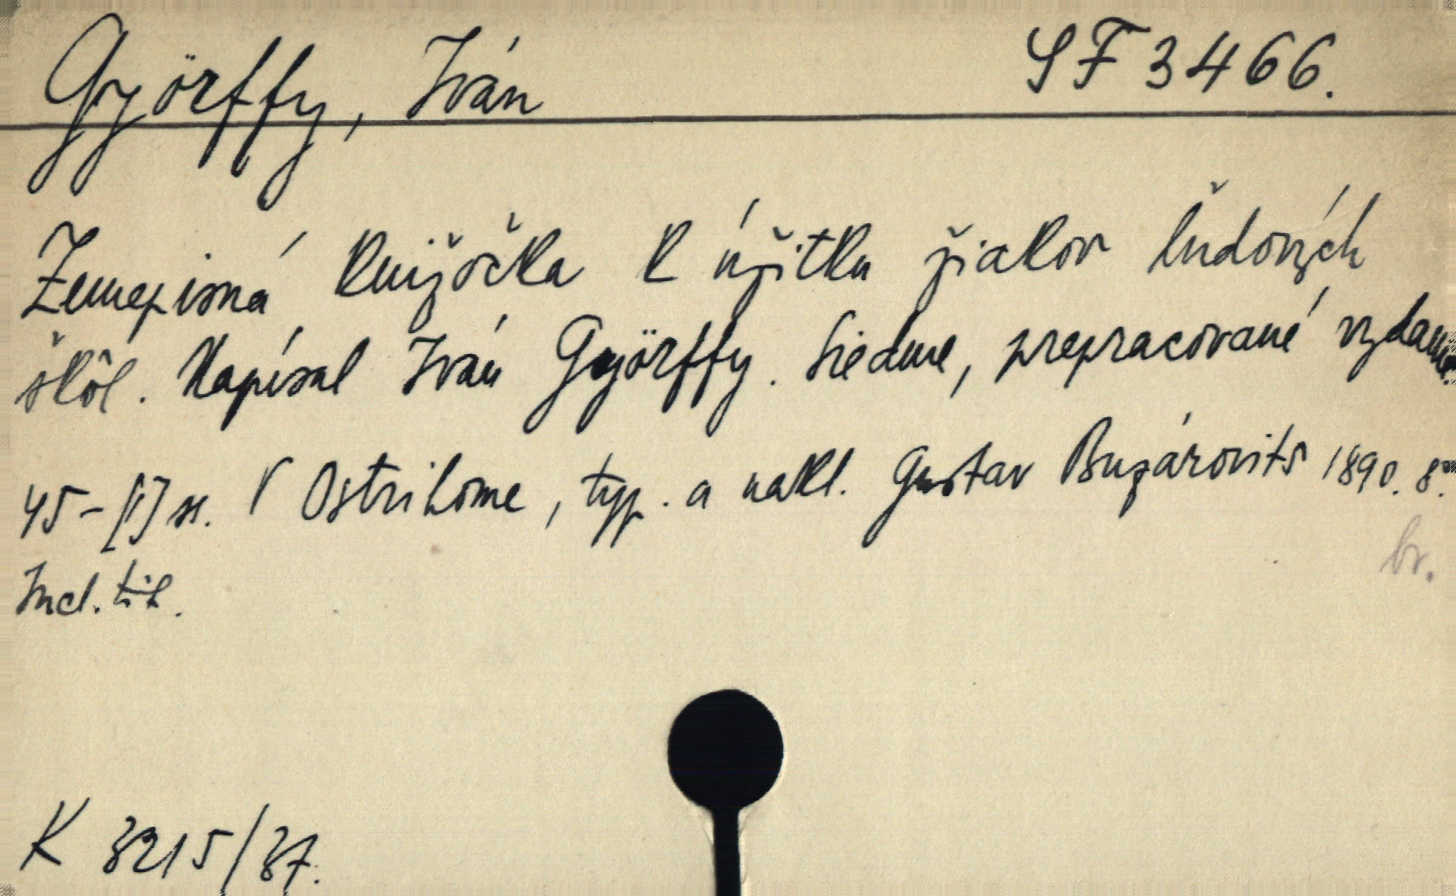 Györffy, Iván SF 3466.
Zemepisná knižočka k úžitku žiakov ľudových
škôl. Napísal Iván Györffy. Siedme, prepracované vydanie.
45-[1] s. V Ostrihome, typ. a nakl. Gustav Buzárovits 1890. 8.
br.
Incl. tit.
K 3215/37.